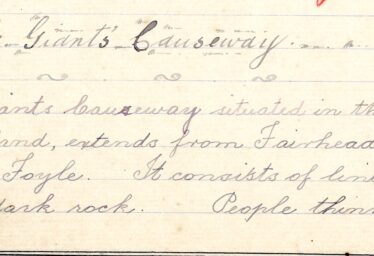 Giants' Causeway.
iants Causeway situated in th
land, extends from Fairhead
Foyle. It consists of lin
dark rock. People thin